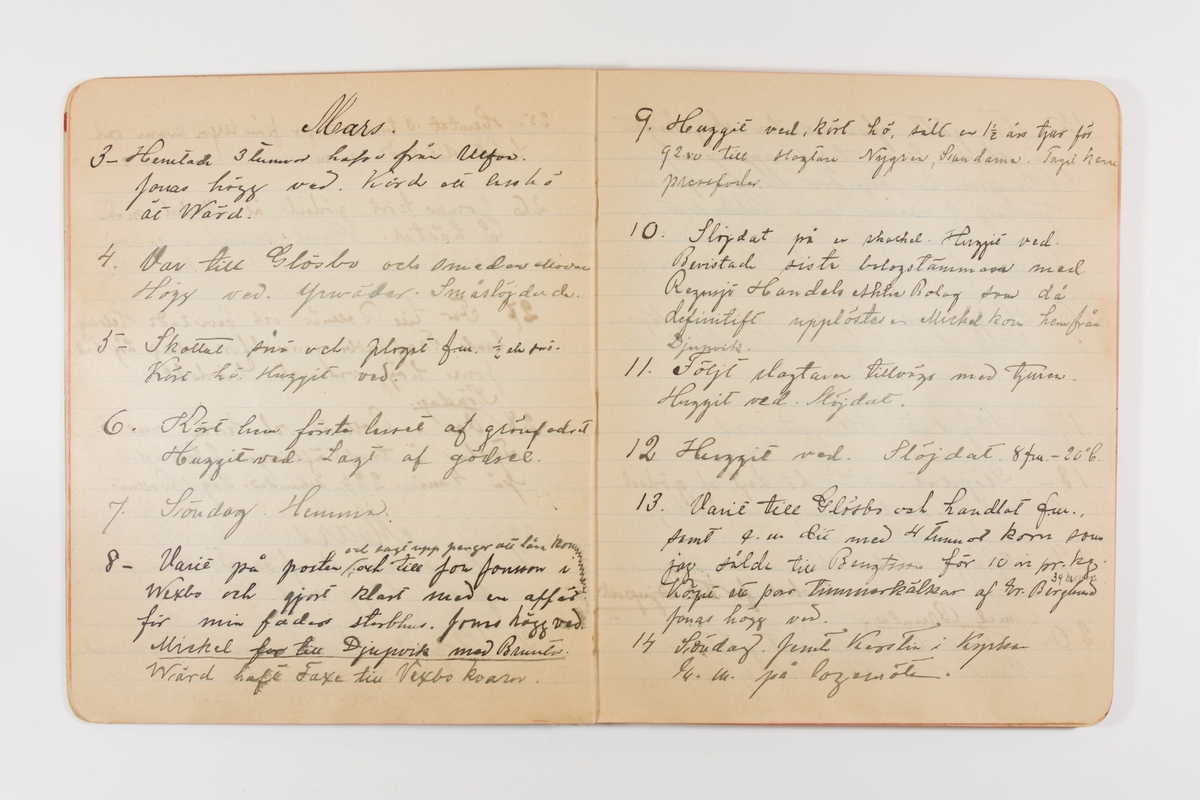 Mars.
3- Hemtade 3 tunnor hafre från Ulfon.
Jonas högg ved. Körd ett lass hö
åt Wård.
4. Var till Glösbo och smeden
Högg ved. Yrwäder. Småslöjdade.
5- Skottat snö och plogat fm. ½ snö.
Kört hö. Huggit ved.
6. Kört hem första lasset af grönfodret
Huggit ved. Lagt af gödsel.
7. Söndag. Hemma.
och sagt upp penger att
8- Varit på posten och till Jon Jonsson i
Wexbo och gjort klart med en affär
för min faders sterbhus. Jonas högg ved.
Mickel for till Djupvik med Brunte.
Wård haft Faxe till Vexbo kvarn.
9. Huggit ved, kört hö, sålt en 1½ års tjur för
92.50 till slagtare Nygren, Sandarna. Tagit hem
pressfoder.
10. Slöjdat på en skackel. Huggit ved.
Bevistade sista bolagstämman med
Regnsjö Handels aktie Bolag som då
definitift upplöstes. Mickel kom hem från
Djupvik.
11. Följt slagtaren tillvägs med tjuren.
Huggit ved. Slöjdat.
12 Huggit ved. Slöjdat. 8 fm. - 20° 6.
13. Varit till Glösbo och handlat fm.,
samt q. en dit med 4 tunnor korn som
jag sålde till Bengtsson för 10 öre pr. kg.
Köpt ett par timmerkälkar af Er. Berglund
Jonas högg ved.
14 Söndag. Jemt Kerstin i Kyrkan
E. m. på logemöte.